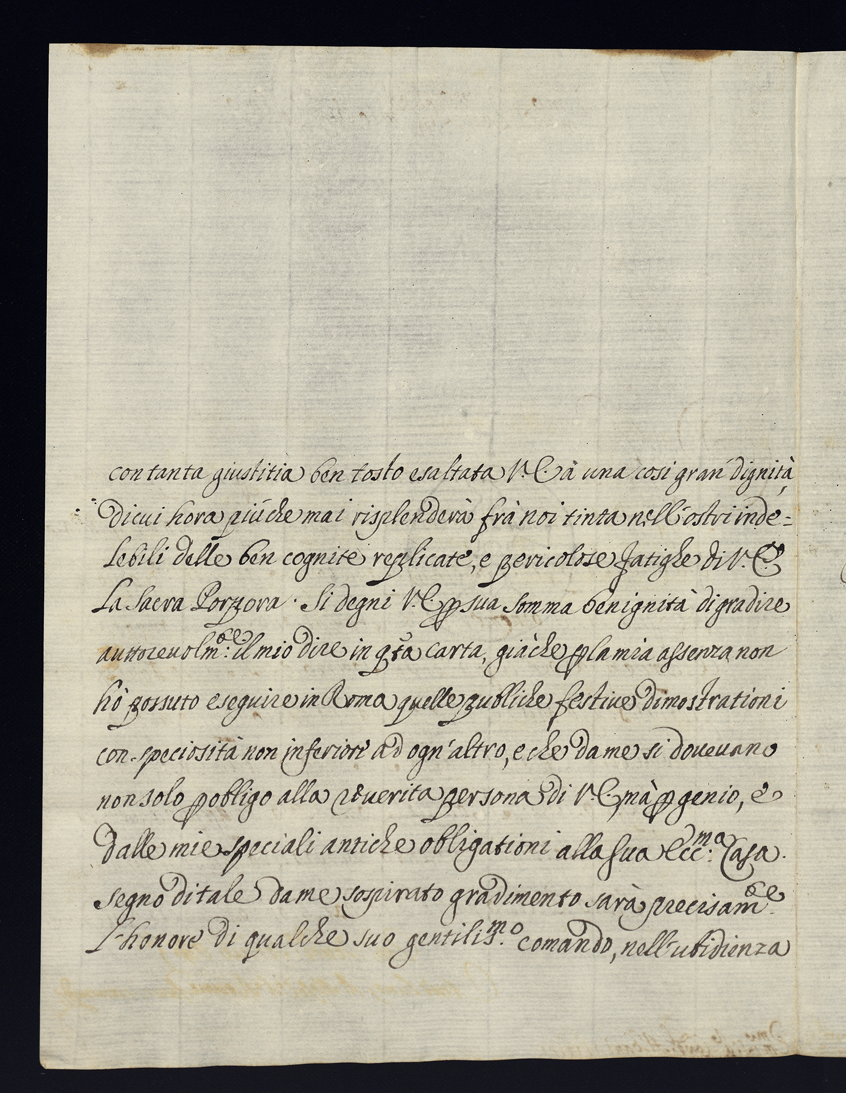 con tanta giustitia ben tosto esaltata V. E. à una cosi gran' dignità,
di cui hora più che mai risplenderà frà noi tinta nell'ostri inde=
lebili delle ben cognite replicate, e pericolose fatighe di V. E.
La Sacra Porpora. Si degni V. E. p sua somma benignità di gradire
auttorevolm.te il mio dire in q.sta carta, giàche p la mia assenza non
hò possuto eseguire in Roma quelle publiche festive dimostrationi
con speciosità non inferiori ad ogn'altro, e che da me si dovevano
non solo p obligo alla riverita persona di V. E. mà p genio, e
dalle mie speciali antiche obligationi alla sua Ecc.ma Casa.
segno di tale da me sospirato gradimento sarà precisam.te
l'honore di qualche suo gentilis.mo comando, nell'ubidienza